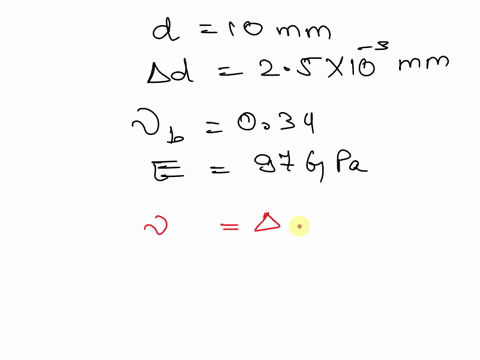 d = 10 mm
Δd = 2.5 × 10⁻³ mm
ν_b = 0.34
E = 97 GPa
ν = Δ